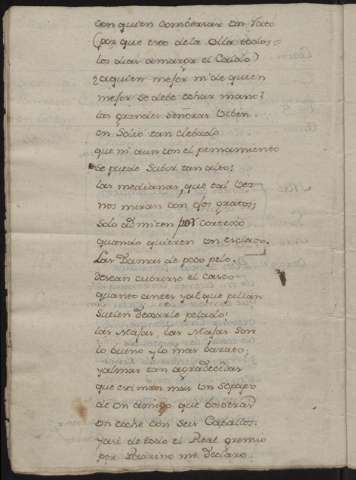 con quien conversar un rato
(por que eso de la Olla todos
los dias amarga el Caldo)
¿aquien mejor ni de quien
mejor se debe echar mano?
las grandes Señoras viben
en Solio tan elebado
que ni aun con el pensamiento
se puede Subir tan alto;
las medianas, que tal vez
nos miran con ojos gratos,
Solo admiten por cortejo
quando quieren un esclavo.
Las Damas de poco pelo
desean cubrirse el casco
quanto antes y al que pillan
suelen dexarle pelado:
las Majas, las Majas son
lo bueno y lo mas barato;
y almas tan agradecidas
que estiman mas un Sopapo
de un amigo que bolotear
en coche con seis Caballos.
y asi de todo el Real gremio
por Padrino me declaro.